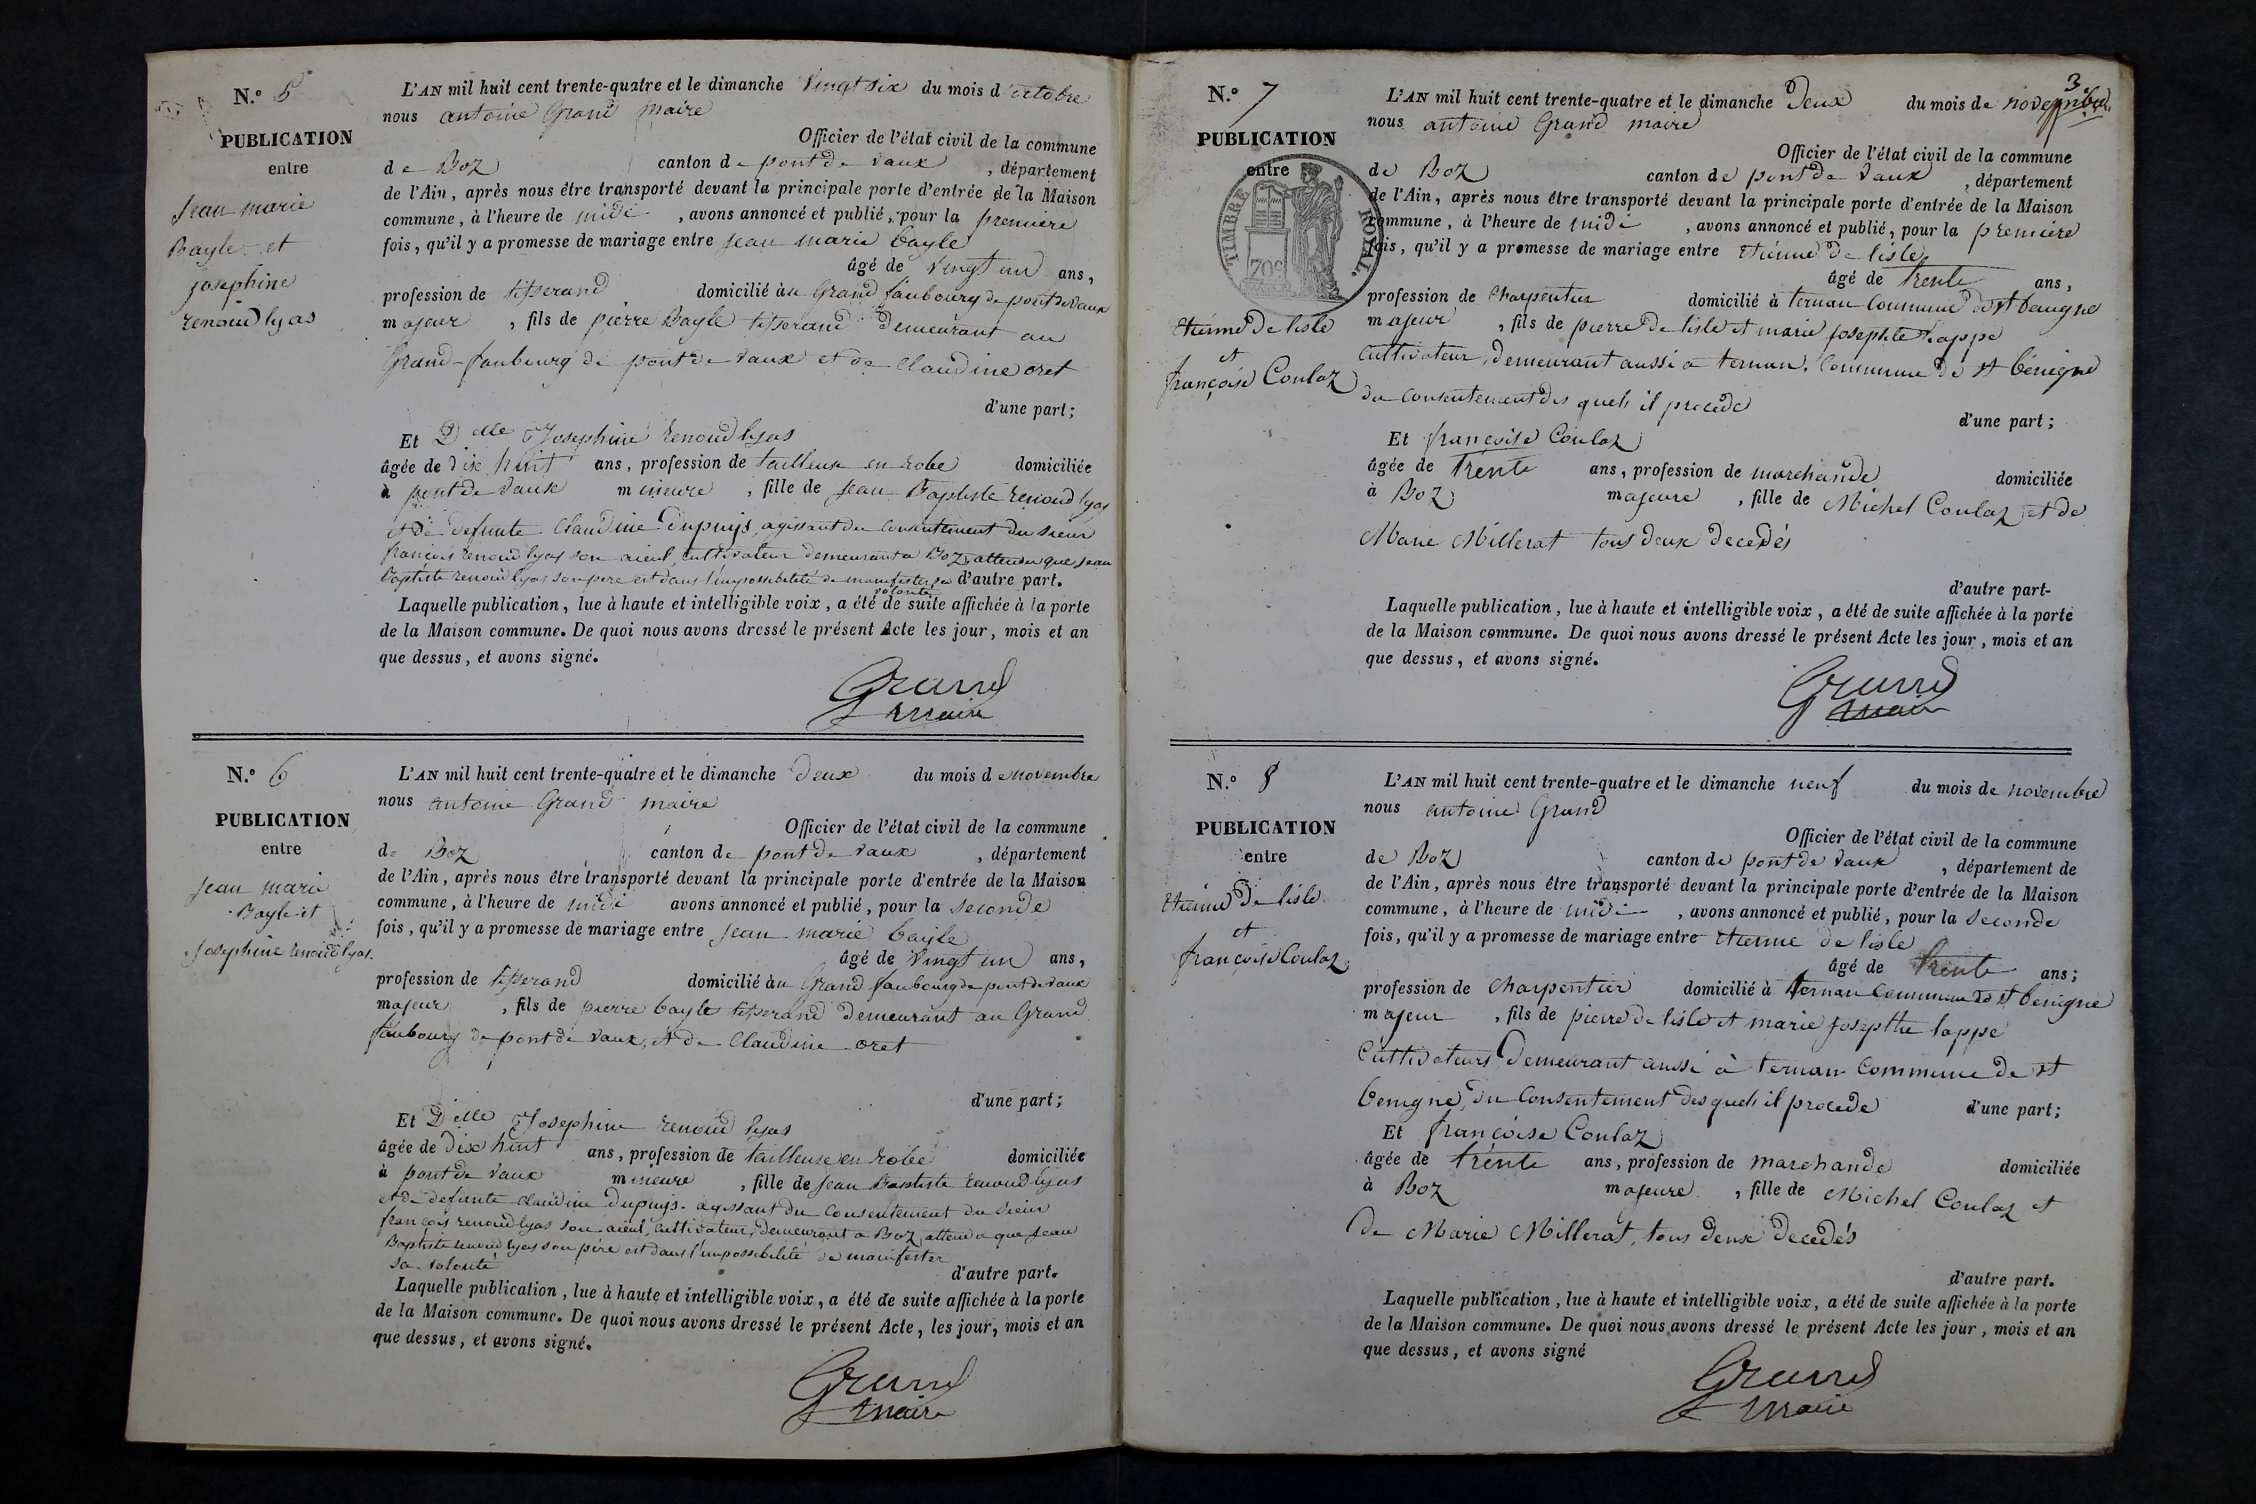 N.º 5
PUBLICATION
entre
Jean marie
Bayle et
josephine
renoud lyas
L'AN mil huit cent trente-quatre et le dimanche vingt six du mois d'octobre
nous antoine Grand maire
Officier de l'état civil de la commune
de Boz canton de pont de vaux , département
de l'Ain, après nous être transporté devant la principale porte d'entrée de la Maison
commune, à l'heure de midi , avons annoncé et publié, pour la premiere
fois, qu'il y a promesse de mariage entre jean marie bayle
âgé de vingt un ans,
profession de tisserand domicilié au Grand faubourg de pont de vaux
majeur , fils de pierre Bayle tisserand demeurant au
Grand-faubourg de pont de vaux et de Claudine oret
d'une part;
Et Delle Josephine renoud lyas
âgée de dix huit ans, profession de tailleuse en robe domiciliée
à pont de vaux mineure , fille de jean Baptiste renoud lyas
et de defunte Claudine dupuis, agissant du consentement du sieur
françois renoud lyas son aieul, cultivateur demeurant a Boz, attendu que jean
baptiste renoud lyas son pere est dans l'impossibilité de manifester sa d'autre part.
volonté
Laquelle publication, lue à haute et intelligible voix, a été de suite affichée à la porte
de la Maison commune. De quoi nous avons dressé le présent Acte les jour, mois et an
que dessus, et avons signé.
Grand
maire
N.º 6
PUBLICATION
entre
jean marie
Bayle et
Josephine renoud lyas.
L'AN mil huit cent trente-quatre et le dimanche deux du mois de novembre
nous antoine Grand maire
Officier de l'état civil de la commune
de Boz canton de pont de vaux , département
de l'Ain, après nous être transporté devant la principale porte d'entrée de la Maison
commune, à l'heure de midi avons annoncé et publié, pour la seconde
fois, qu'il y a promesse de mariage entre jean marie bayle
âgé de vingt un ans,
profession de tisserand domicilié au Grand faubourg de pont de vaux
majeur , fils de pierre bayle tisserand demeurant au Grand
faubourg de pont de vaux, et de Claudine oret
d'une part;
Et Delle Josephine renoud lyas
âgée de dix huit ans, profession de tailleuse en robe domiciliée
à pont de vaux mineure , fille de jean Baptiste renoud lyas
et de defunte claudine dupuis, agissant du consentement du sieur
françois renoud lyas son aieul, cultivateur, demeurant a Boz, attendu que jean
Baptiste renoud lyas son père est dans l'impossibilité de manifester
sa volonté
d'autre part.
Laquelle publication, lue à haute et intelligible voix, a été de suite affichée à la porte
de la Maison commune. De quoi nous avons dressé le présent Acte, les jour, mois et an
que dessus, et avons signé.
Grand
maire
3
N.º 7
PUBLICATION
entre
TIMBRE ROYAL.
70c
etienne de lisle
et
françoise Coulaz
L'AN mil huit cent trente-quatre et le dimanche deux du mois de novembre
nous antoine Grand maire
Officier de l'état civil de la commune
de Boz canton de pont de vaux , département
de l'Ain, après nous être transporté devant la principale porte d'entrée de la Maison
commune, à l'heure de midi , avons annoncé et publié, pour la premiere
fois, qu'il y a promesse de mariage entre etienne de lisle
âgé de trente ans,
profession de charpentier domicilié à ternan commune de st benigne
majeur , fils de pierre de lisle et marie josephte lappe
cultivateur, demeurant aussi a ternan, commune de st bénigne
du consentement des quels il procede
d'une part;
Et françoise Coulaz
âgée de trente ans, profession de marchande domiciliée
à Boz majeure , fille de Michel Coulaz et de
Marie Millerat tous deux decedés
d'autre part-
Laquelle publication, lue à haute et intelligible voix, a été de suite affichée à la porte
de la Maison commune. De quoi nous avons dressé le présent Acte les jour, mois et an
que dessus, et avons signé.
Grand
maire
N.º 8
PUBLICATION
entre
etienne de lisle
et
françoise Coulaz
L'AN mil huit cent trente-quatre et le dimanche neuf du mois de novembre
nous antoine Grand
Officier de l'état civil de la commune
de Boz canton de pont de vaux , département de
de l'Ain, après nous être transporté devant la principale porte d'entrée de la Maison
commune, à l'heure de midi , avons annoncé et publié, pour la seconde
fois, qu'il y a promesse de mariage entre etienne de lisle
âgé de trente ans;
profession de charpentier domicilié à ternan commune de st benigne
majeur , fils de pierre de lisle et marie josephte lappe
cultivateurs demeurant aussi à ternan commune de st
benigne, du consentement des quels il procede d'une part;
Et françoise Coulaz
âgée de trente ans, profession de marchande domiciliée
à Boz majeure , fille de Michel Coulaz et
de Marie Millerat, tous deux decedés
d'autre part.
Laquelle publication, lue à haute et intelligible voix, a été de suite affichée à la porte
de la Maison commune. De quoi nous avons dressé le présent Acte les jour, mois et an
que dessus, et avons signé
Grand
maire